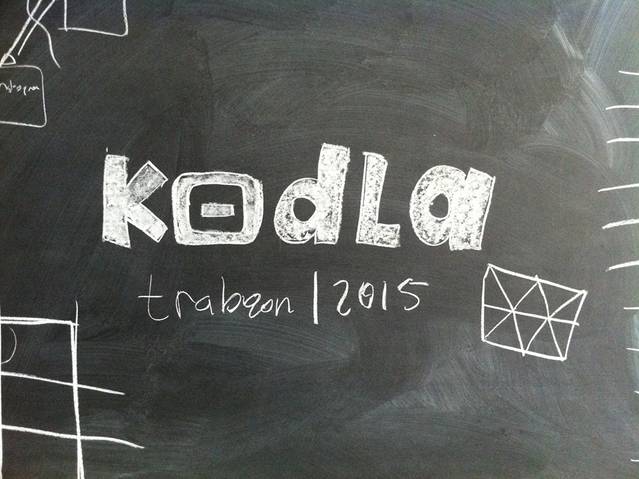 kodla
trabzon | 2015